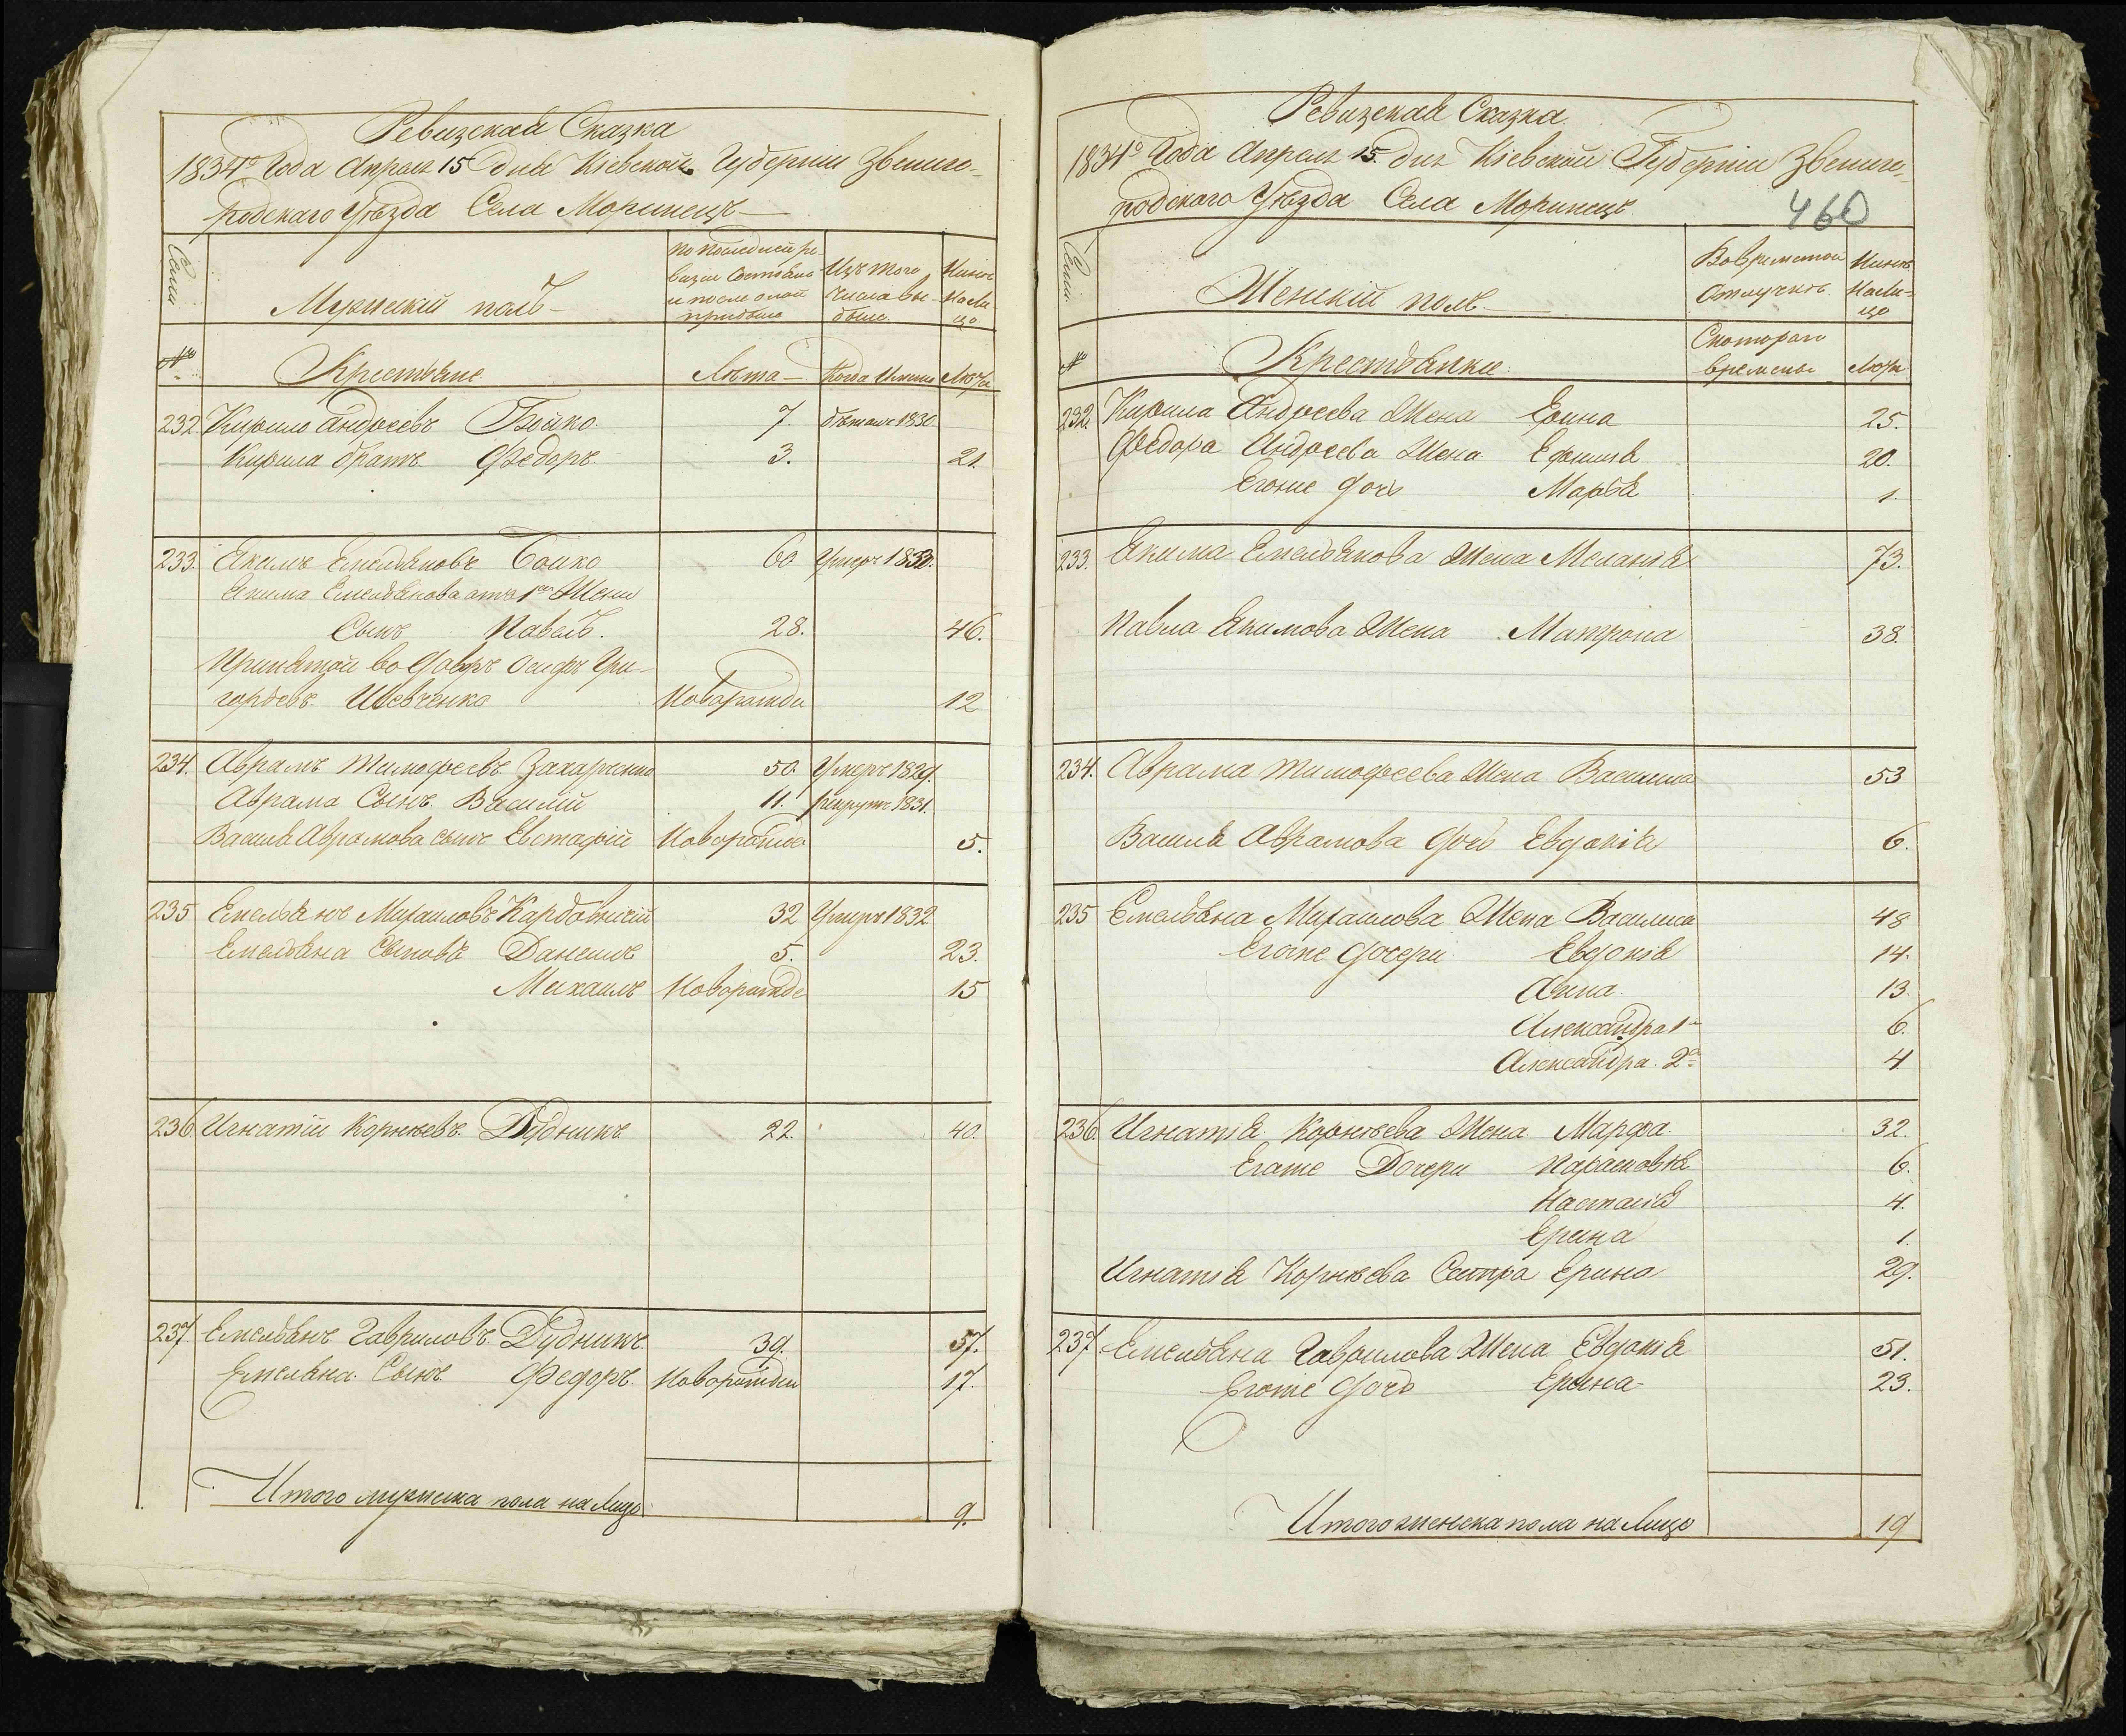 Ревизская Сказка
1834го Года Апреля 15 Дня Кіевской Губерніи Звениго-
родскаго Уѣзда Села Моринець
Семьи
Мужескій полъ
по последней ре-
визіи Состояло
и после оной
прибыло
Изъ того
числа вы-
было
Нынѣ
на ли-
цо
№
Крестьяне
Лѣта
Когда Именно
Лѣта
232. Кирило Андреевъ Бойко 7. бѣжалъ 1830
Кирила братъ Федоръ 3. 21.
233. Якимъ Емельяновъ Бойко 60 Умеръ 1833.
Якима Емельянова отъ 1ой Жены
Сынъ Павелъ. 28. 46.
Принятой во дворъ Осифъ Гри-
горьевъ Шевченко Новорожде 12
234. Аврамъ Тимофеевъ Захарченко 50. Умеръ 1829.
Аврама Сынъ Василій 11. рекрутъ 1831.
Василя Аврамова сынъ Евстафій Новорожде 5.
235 Емельянъ Михаиловъ 32 Умеръ 1832
Емельяна Сыновья Данешль 5. 23.
Михаилъ Новорожде 15
236. Игнатій Корнѣевъ Дудникъ 22. 40.
237. Емельянъ Гавриловъ Дудникъ 39. 57.
Емельяна Сынъ Федоръ Новорожден 17.
Итого мужеска пола на Лицо 9.
Ревизская Сказка
1834го Года Апреля 15 дня Кіевской Губерніи Звениго-
родскаго Уѣзда Села Моринець
460
Семьи
Женскій полъ
Во временной
Отлучкѣ
Нынѣ
на ли-
цо
№
Крестьянки
Скотораго
времени
Лѣта
232. Кирила Андреева Жена Ерина 25.
Федора Андреева Жена Ефимія 20.
Егоже дочь Марья 1.
233. Якима Емельянова Жена Меланія 73.
Павла Якимова Жена Матрона 38.
234. Аврама Тимофеева Жена Василиса 53
Василя Аврамова дочь Евдокія 6.
235 Емельяна Михаилова Жена Василиса 48
Егоже дочери Евдокія 14.
Анна. 13.
Александра 1я 6.
Александра. 2я 4
236. Игнатія Корнѣева Жена Марфа. 32.
Егоже Дочери Парасковья 6.
Настасія 4.
Ерина 1.
Игнатія Корнѣева Сестра Ерина 29.
237. Емельяна Гаврилова Жена Евдокія 51.
Егоже дочь Ерина 23.
Итого женска пола на Лицо 19